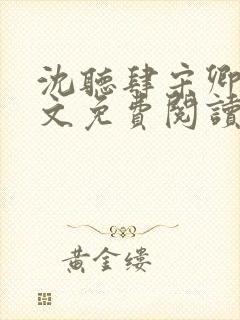 沈聽肆宋卿
文免費閱讀
黃金縷